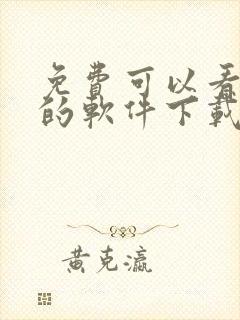 免費可以看
的軟件下載
黃克瀛